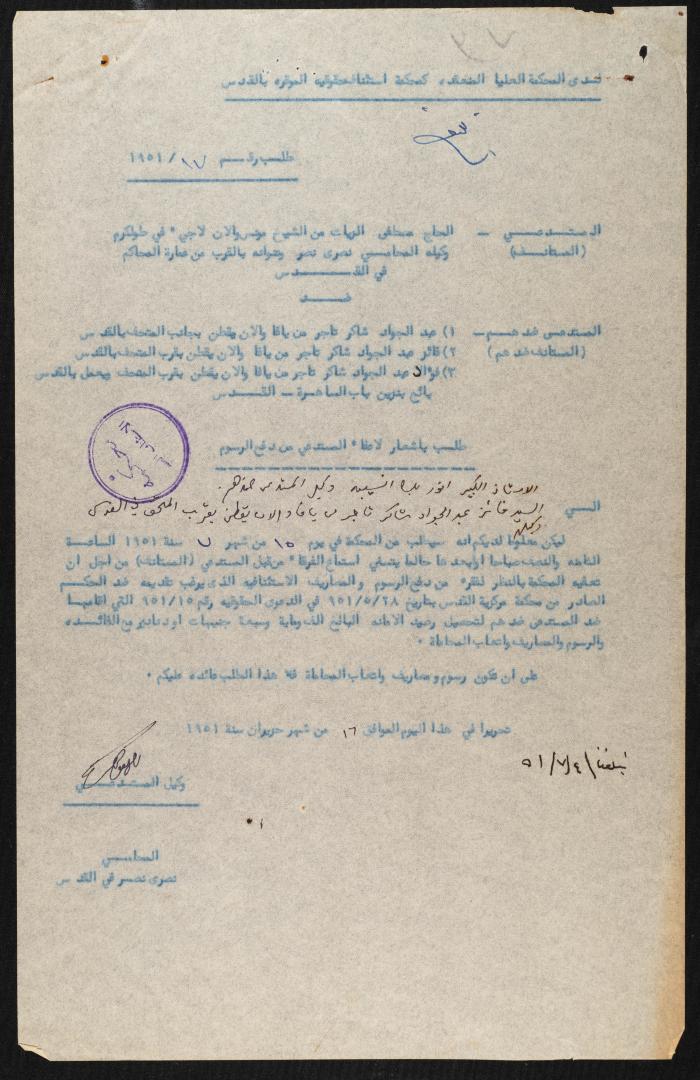 لدى المحكمة العليا المنعقده كمحكمة استئناف حقوقيه الموقره بالقدس
طلب رقم ١٧/ ١٩٥١
المستدعي – الحاج مصطفى الزيات من الشيخ مونس والان لاجيء في طولكرم
(المستانف) وكيله المحامي نصري نصر وعنوانه بالقرب من عمارة المحاكم
في القدس
ضد
المستدعى ضدهم – ١) عبد الجواد شاكر تاجر من يافا والان يقطن بجانب المتحف بالقدس
(المستانف ضدهم) ٢) فائز عبد الجواد شاكر تاجر من يافا والان يقطن بقرب المتحف بالقدس
٣) فؤاد عبد الجواد شاكر تاجر من يافا والان يقطن بقرب المتحف ويعمل بالقدس
بائع بنزين باب الساهرة – القدس
طلب باشعار لاعفاء المستدعي من دفع الرسوم
الاستاذ الكبير انور بك نسيبه وكيل المستدعى ضدهم.
الى السيد فائز عبد الجواد شاكر تاجر من يافا والان يقطن بقرب المتحف في القدس
ليكن معلوما لديكم انه سيطلب من المحكمة في يوم ١٥ من شهر ٧ سنة ١٩٥١ الساعة
الثامنه والنصف صباحا او بعدها حالما يتسنى استماع الفرقاء من قبل المستدعي (المستانف) من اجل ان
تعفيه المحكمة بالنظر لفقره من دفع الرسوم والمصاريف الاستئنافيه الذى يرغب تقديمه ضد الحكم
الصادر من محكمة مركزية القدس بتاريخ ٩٥١/٥/٢٨ في الدعوى الحقوقيه رقم ٩٥١/١٥ التي اقامها
ضد المستدعى ضدهم لتحصيل رصيد الامانه البالغ الف وماية وسبعة جنيهات او دنانير مع الفائده
والرسوم والمصاريف واتعاب المحاماة ٠
على ان تكون رسوم ومصاريف واتعاب المحاماة هذا الطلب عائده عليكم ٠
تحريرا في هذا اليوم الموافق ١٦ من شهر حزيران سنة ١٩٥١
تبلغنا ٥١/٧/٤
وكيل المستدعي
المحامي
نصرى نصر في القدس